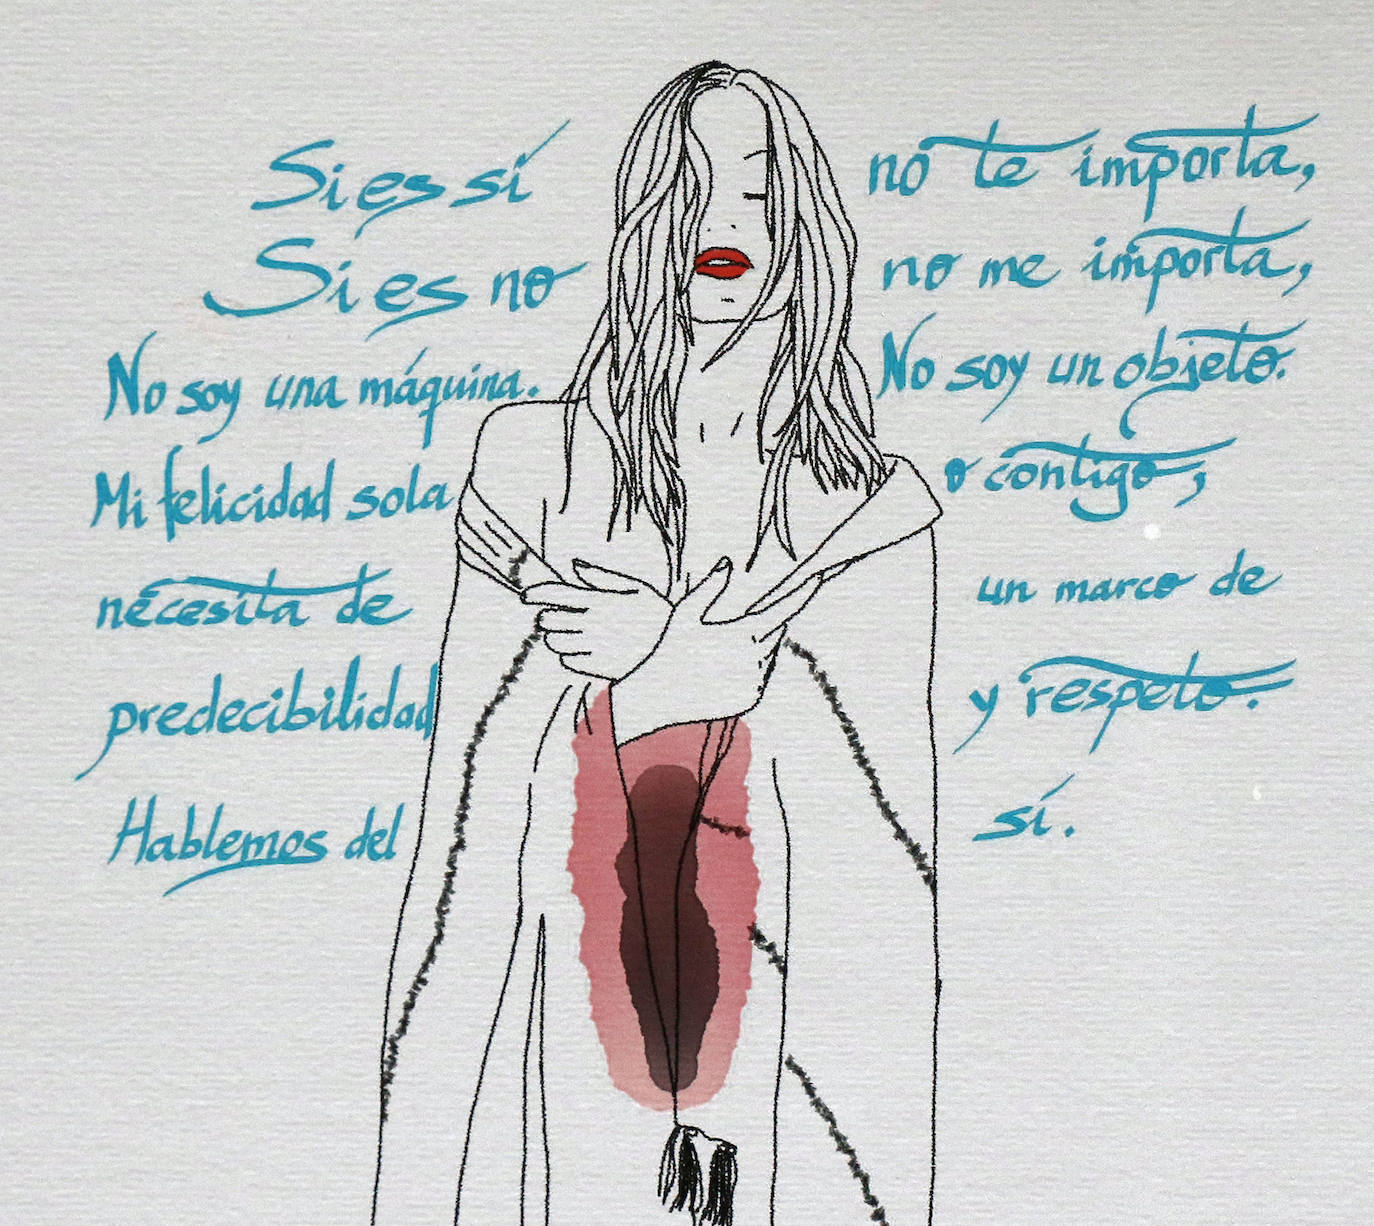 Si es sí no te importa,
Si es no no me importa,
No soy una máquina. No soy un objeto.
Mi felicidad sola o contigo,
necesita de un marco de
predecibilidad y respeto.
Hablemos del sí.